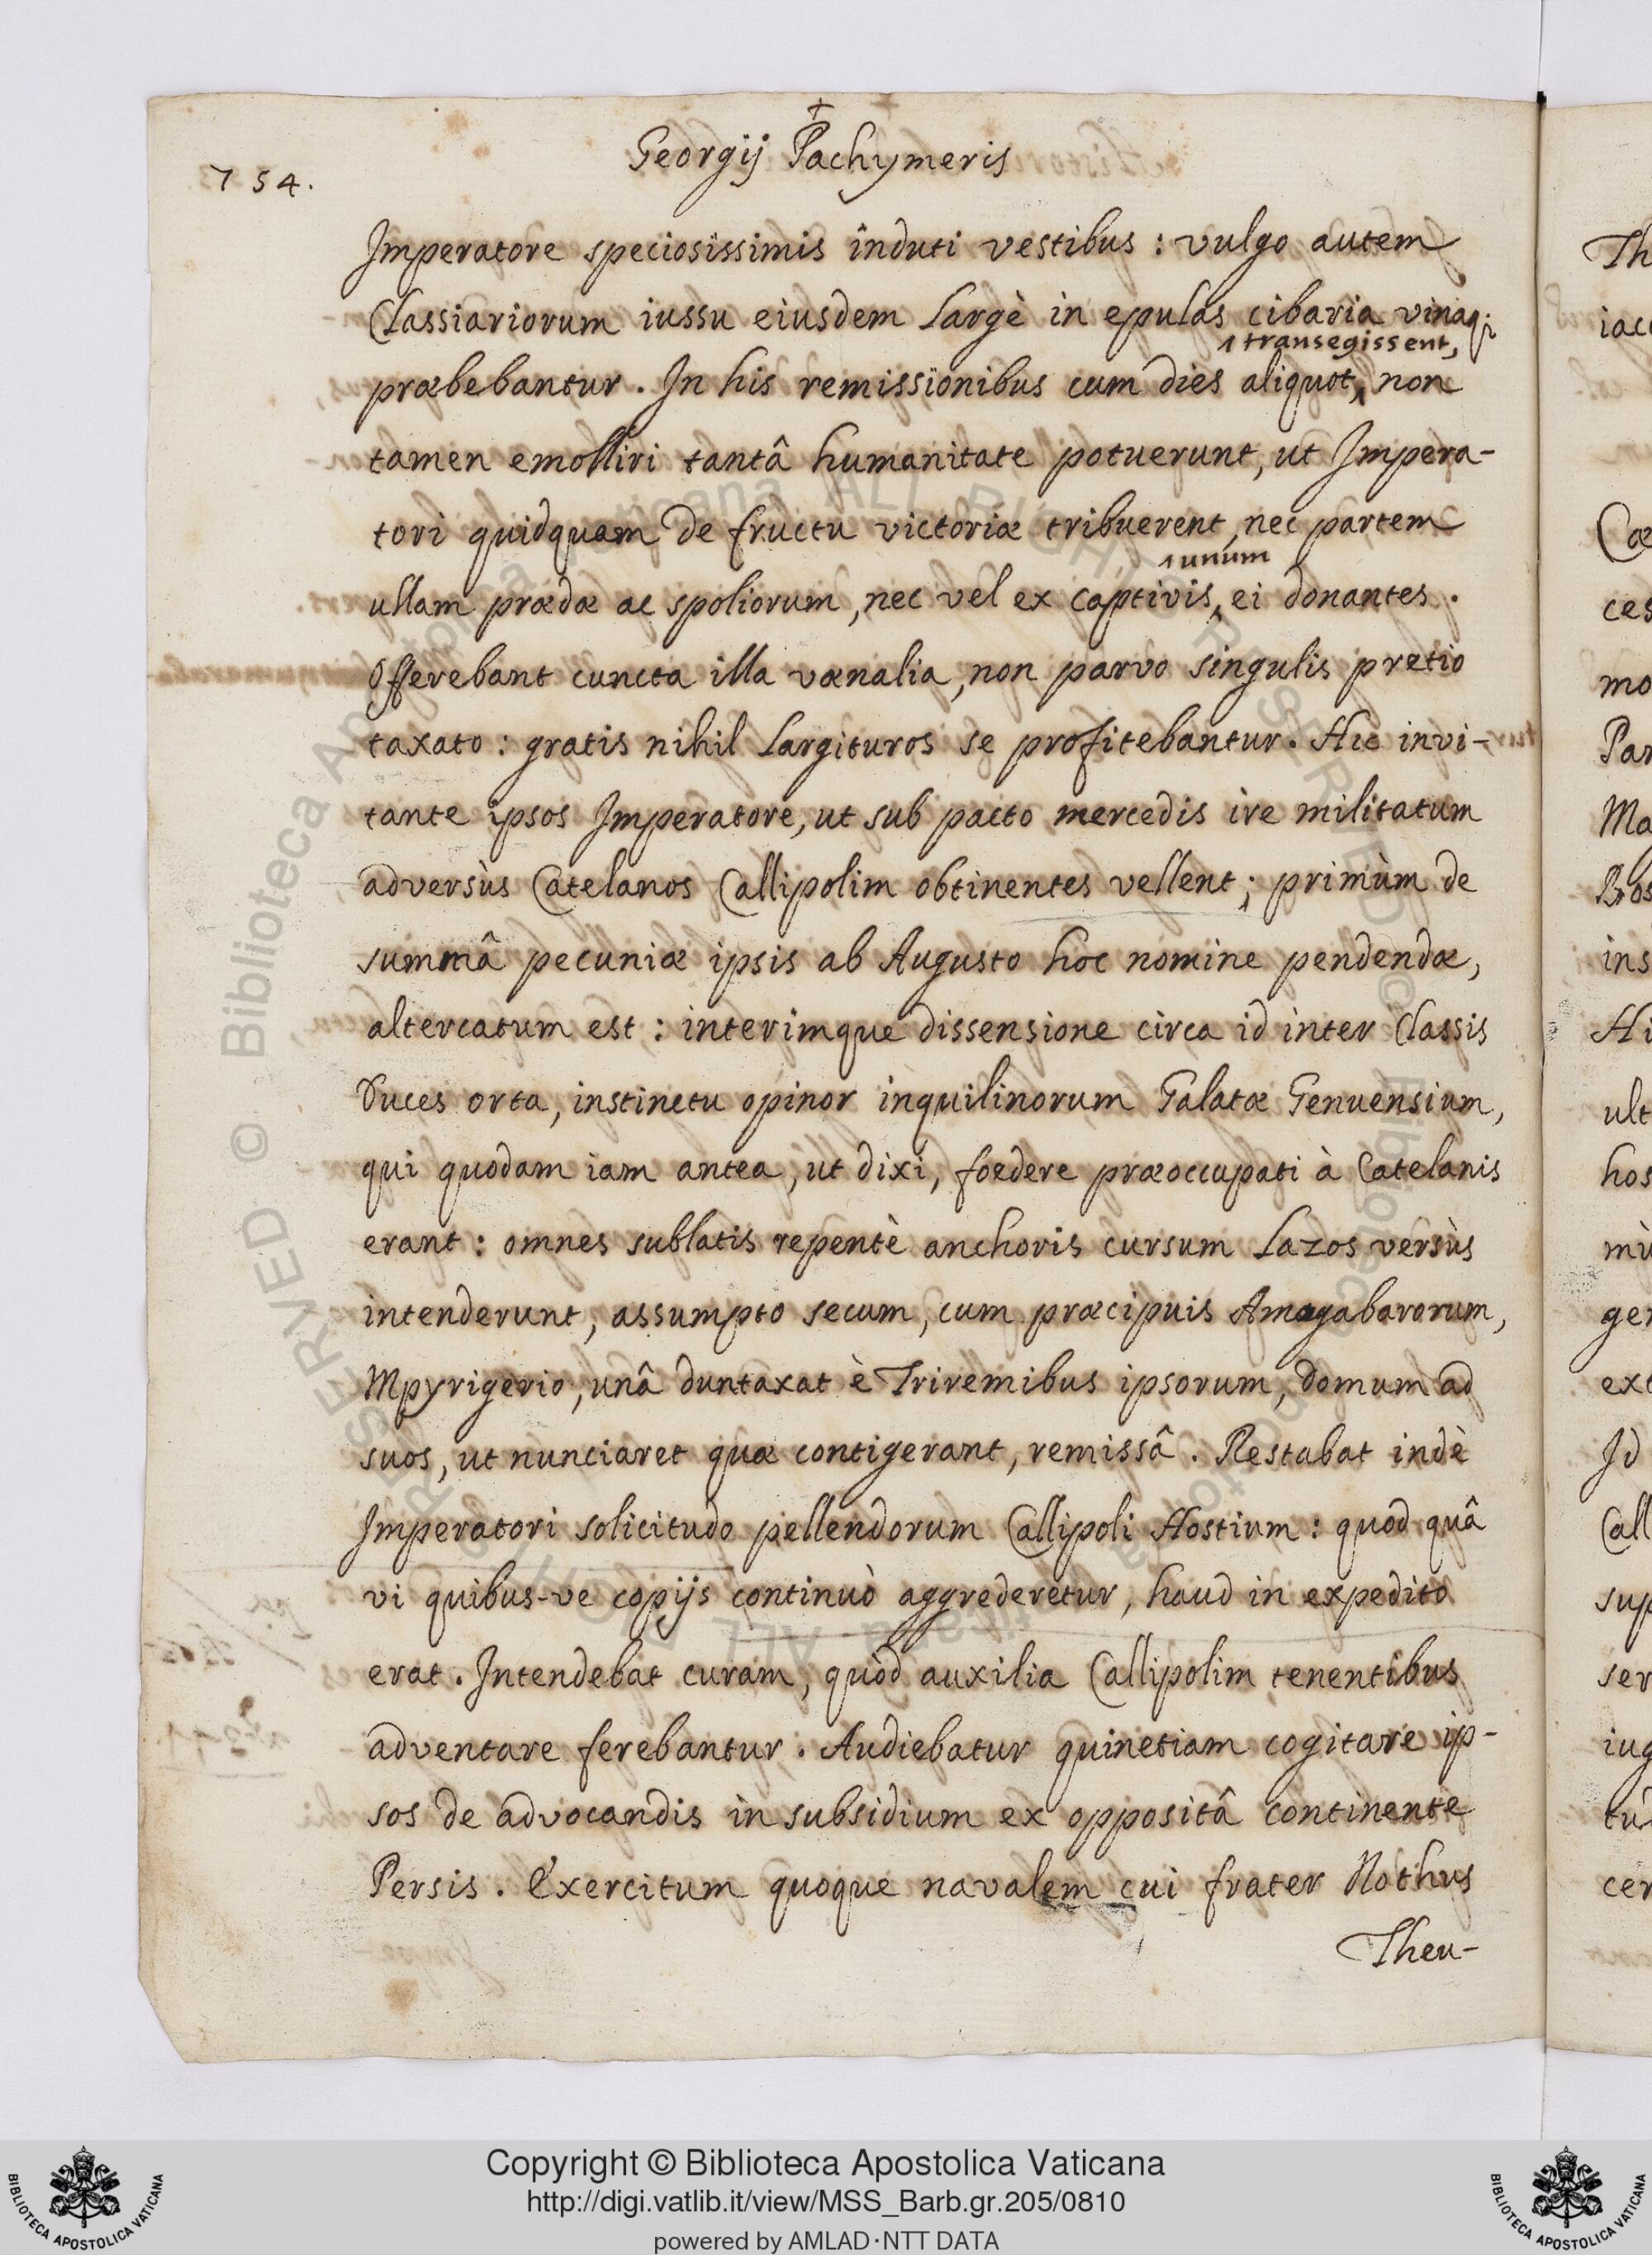 754.
Georgij Pachymeris
Imperatore speciosissimis induti vestibus : vulgo autem
Classiariorum iussu eiusdem largè in epulas cibaria vinaq;
transegissent,
præbebantur. In his remissionibus cum dies aliquot, non
tamen emolliri tantâ humanitate potuerunt, ut Impera-
tori quidquam de fructu victoriæ tribuerent, nec partem
unum
ullam prædæ ac spoliorum, nec vel ex captivis, ei donantes.
Offerebant cuncta illa vænalia, non parvo singulis pretio
taxato : gratis nihil largituros se profitebantur. Hic invi-
tante ipsos Imperatore, ut sub pacto mercedis ire militatum
adversùs Catelanos Callipolim obtinentes vellent; primùm de
summâ pecuniæ ipsis ab Augusto hoc nomine pendendæ,
altercatum est : interimque dissensione circa id inter Classis
Duces orta, instinctu opinor inquilinorum Galatæ Genuensium,
qui quodam iam antea, ut dixi, foedere præoccupati à Catelanis
erant : omnes sublatis repentè anchoris cursum Lazos versùs
intenderunt, assumpto secum, cum præcipuis Amogabarorum,
Mpyrigerio, unâ duntaxat è Triremibus ipsorum, domum ad
suos, ut nunciaret quæ contigerant, remissâ. Restabat indè
Imperatori solicitudo pellendorum Callipoli Hostium : quod quâ
vi quibus-ve copijs continuò aggrederetur, haud in expedito
erat. Intendebat curam, quòd auxilia Callipolim tenentibus
adventare ferebantur. Audiebatur quinetiam cogitare ip-
sos de advocandis in subsidium ex oppositâ continente
Persis. Exercitum quoque navalem cui frater Nothus
Theu-
Th
Cæ
ces
mo
Par
Ma
Bos
ins
Hi
ult
hos
mù
ger
ext
Id
Call
sup
ser
iug
cer
© Biblioteca Apostolica Vaticana ALL RIGHTS RESERVED
Copyright © Biblioteca Apostolica Vaticana
http://digi.vatlib.it/view/MSS_Barb.gr.205/0810
powered by AMLAD·NTT DATA
BIBLIOTECA APOSTOLICA VATICANA
BIBLIOTECA APOSTOLICA VATICANA